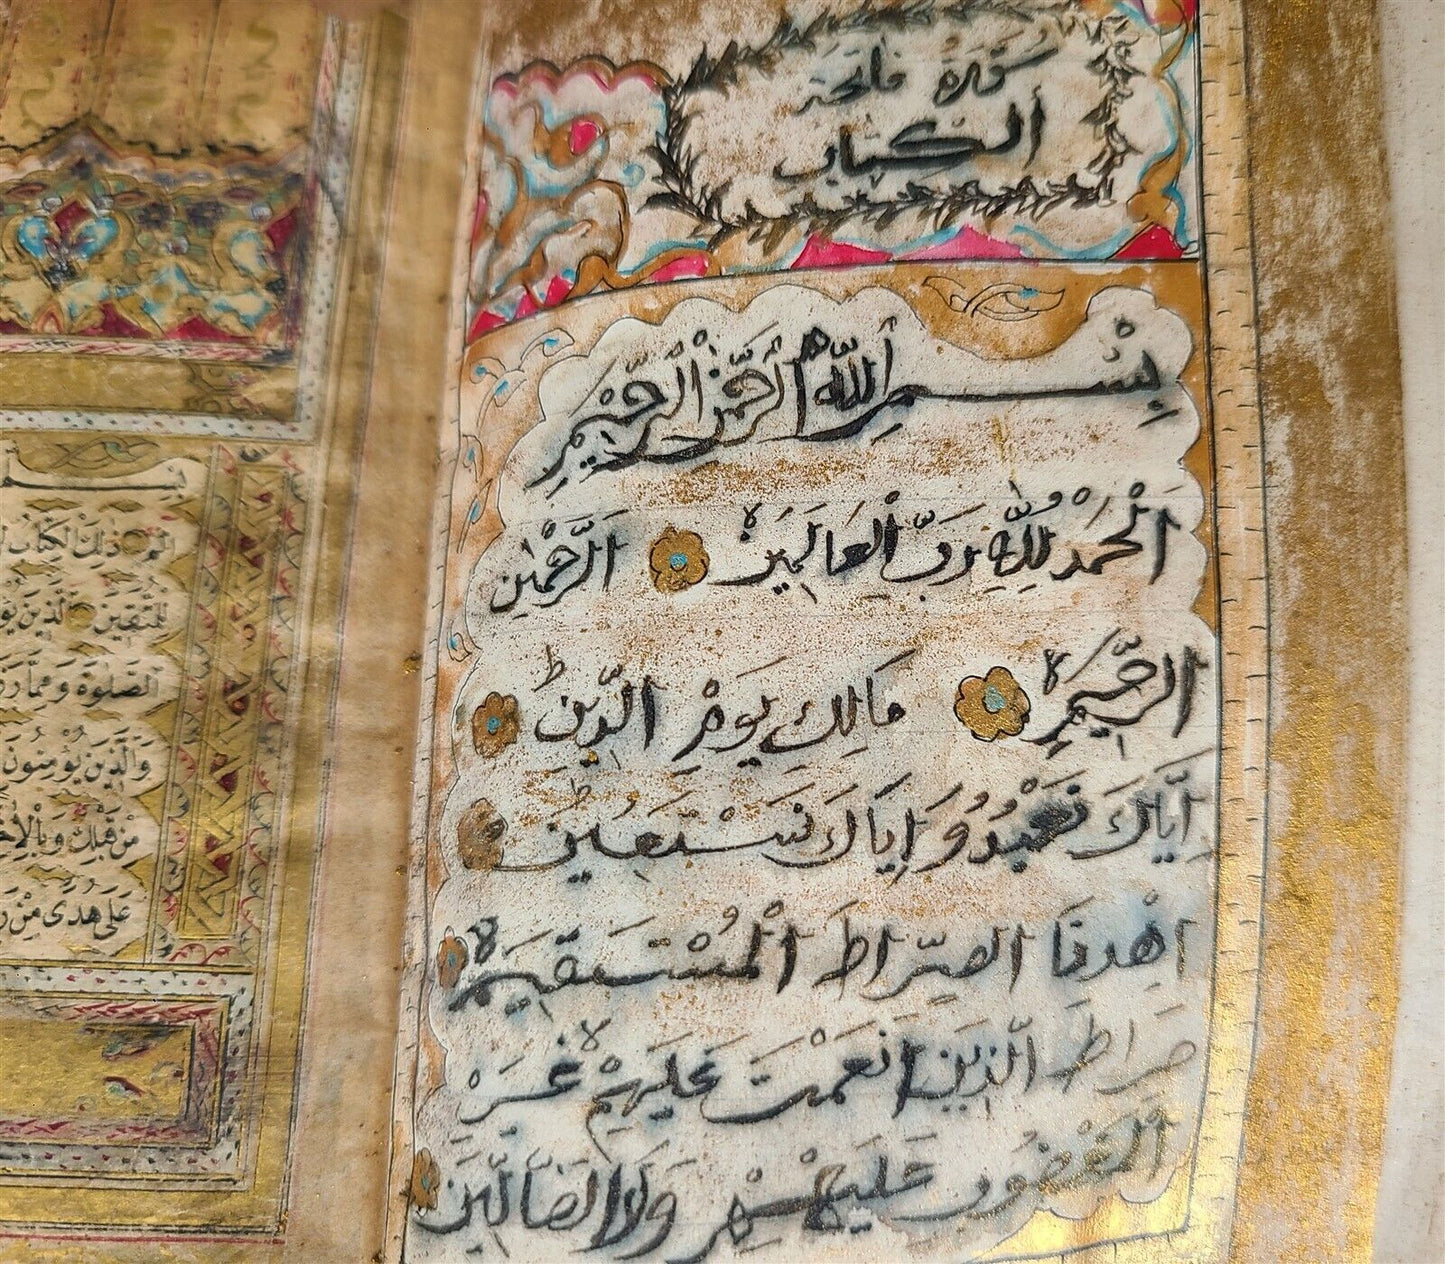 سورة فاتحة
الكتاب
بِسْمِ اللّٰهِ الرَّحْمٰنِ الرَّحِيْمِ
اَلْحَمْدُ لِلّٰهِ رَبِّ الْعَالَمِيْنَ ۙ اَلرَّحْمٰنِ
الرَّحِيْمِ ۙ مَالِكِ يَوْمِ الدِّيْنِ ؕ
اِيَّاكَ نَعْبُدُ وَ اِيَاكَ نَسْتَعِيْنُ ؕ
اِهْدِنَا الصِّرَاطَ الْمُسْتَقِيْمَ ۙ
صِرَاطَ الَّذِيْنَ اَنْعَمْتَ عَلَيْهِمْ ۙ غَيْرِ
الْمَغْضُوْبِ عَلَيْهِمْ وَلَا الضَّالِّيْنَ
بِسْمِ
الٓمٓ ذٰلِكَ الْكِتَابُ
لِلْمُتَّقِيْنَ الَّذِيْنَ
الصَّلٰوةَ وَمِمَّا
وَالَّذِيْنَ يُؤْمِنُوْنَ
مِنْ قَبْلِكَ وَبِالْاٰ
عَلٰى هُدًى مِنْ